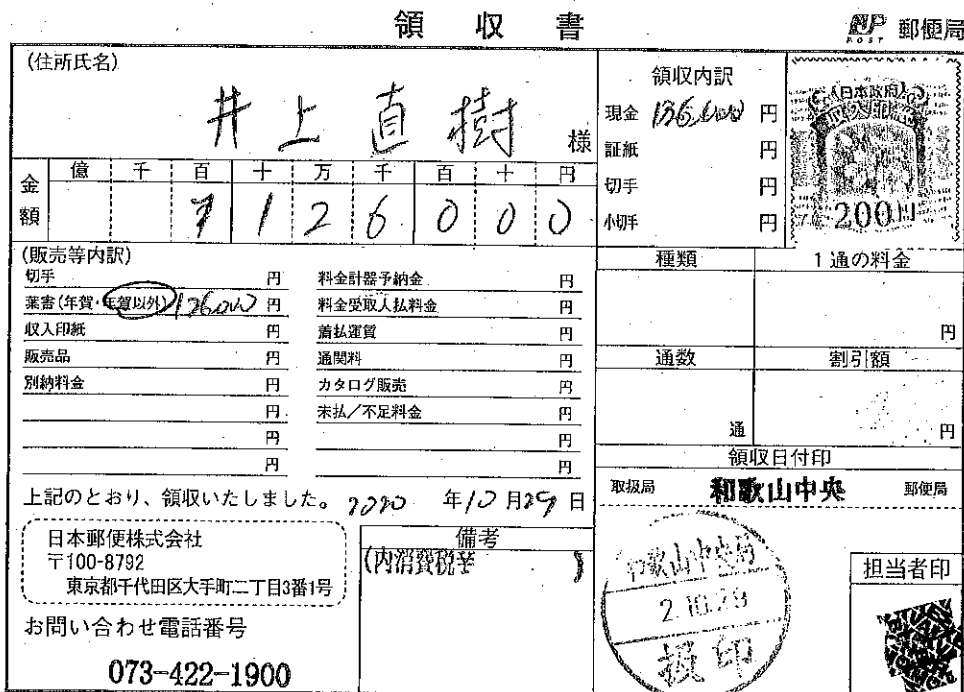 領収書
POST 郵便局
(住所氏名)
井上直樹 様
領収内訳
現金 126,000 円
証紙 円
切手 円
小切手 円
日本政府
収入印紙
200円
金額
億 千 百 十 万 千 百 十 円
¥ 1 2 6 0 0 0
(販売等内訳)
切手 円
葉書(年賀・年賀以外) 126,000 円
収入印紙 円
販売品 円
別納料金 円
円
円
円
料金計器予納金 円
料金受取人払料金 円
着払運賃 円
通関料 円
カタログ販売 円
未払/不足料金 円
円
円
種類 1通の料金
円
通数 割引額
通 円
領収日付印
取扱局 和歌山中央 郵便局
上記のとおり、領収いたしました。 2020 年 10 月 29 日
日本郵便株式会社
〒100-8792
東京都千代田区大手町二丁目3番1号
お問い合わせ電話番号
073-422-1900
備考
(内消費税等 )
和歌山中央局
2.10.29
担当者印